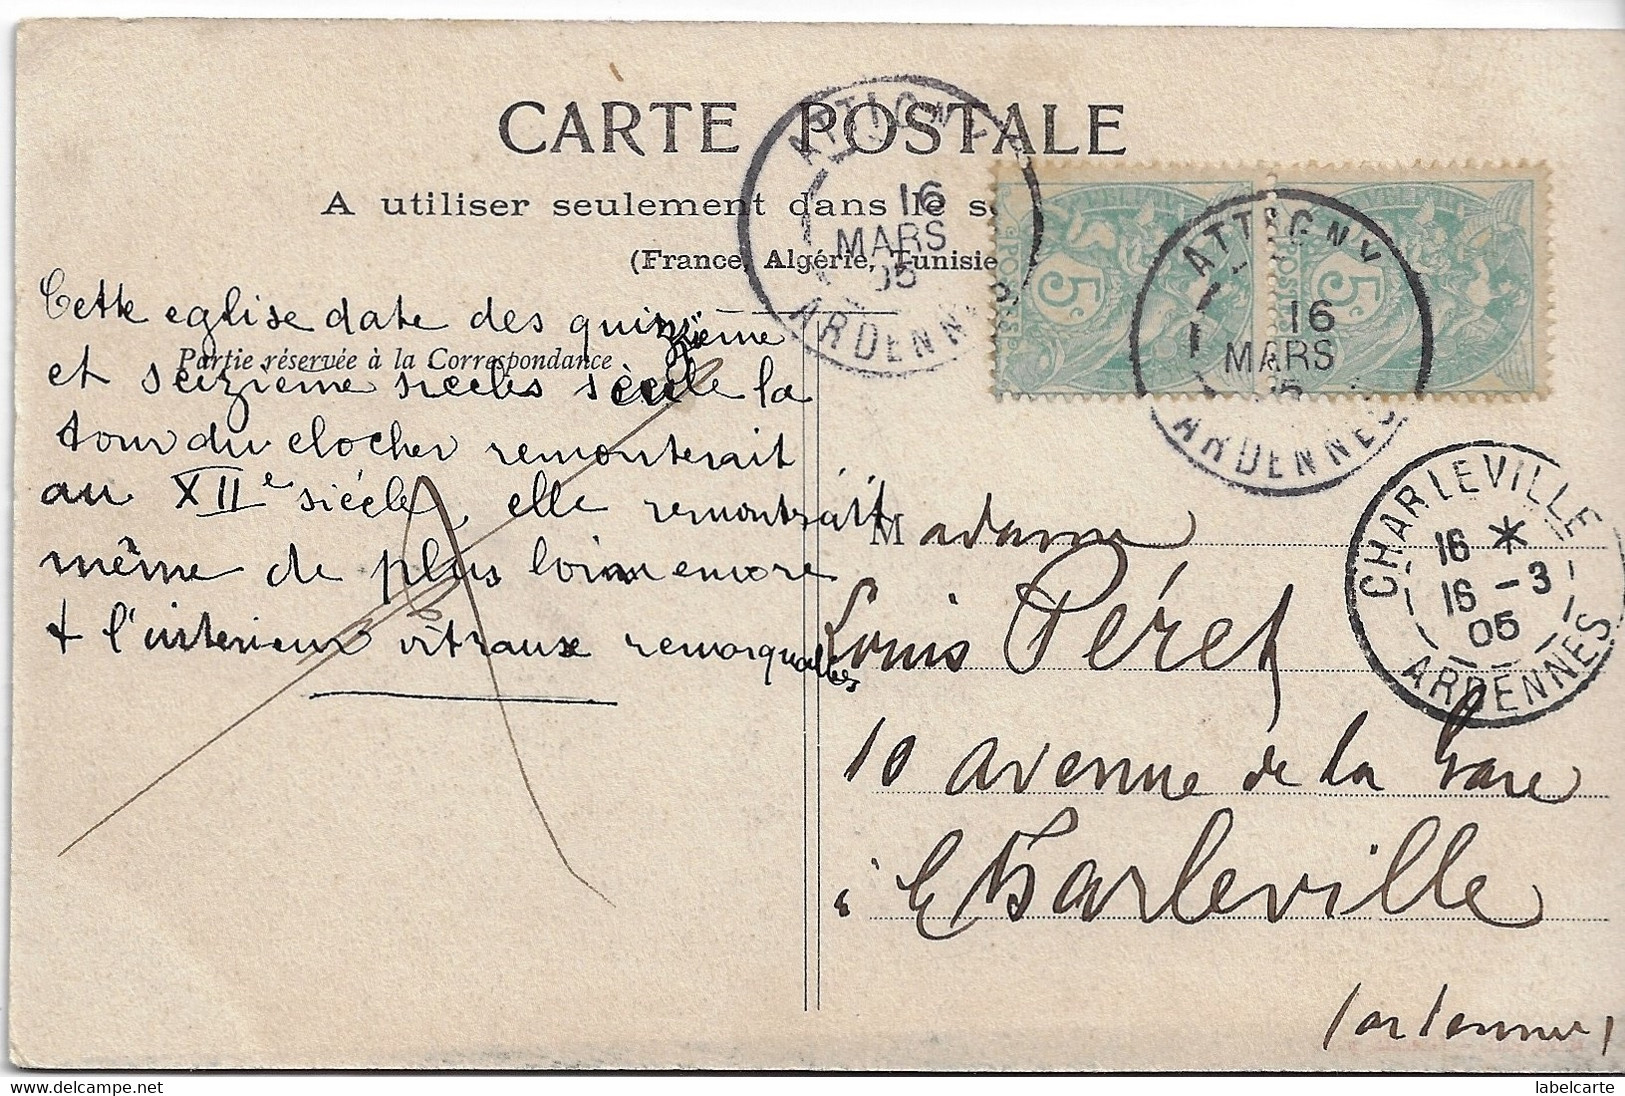 CARTE POSTALE
A utiliser seulement dans le
(France, Algérie, Tunisie
Partie réservée à la Correspondance
Cette eglise date des quinzième
et seizième siecles siècle la
tour du clocher remonterait
au XIIe siécle, elle remontrait
même de plus loin encore
+ l'interieur vitraux remarquables
ATTIGNY
16
MARS
05
ARDENNES
5c
POSTES
5c
POSTES
ATTIGNY
16
MARS
05
ARDENNES
CHARLEVILLE
16 *
16 - 3
05
ARDENNES
Madame
Louis Péret
10 avenue de la Gare
à Charleville
(ardennes)
labelcarte